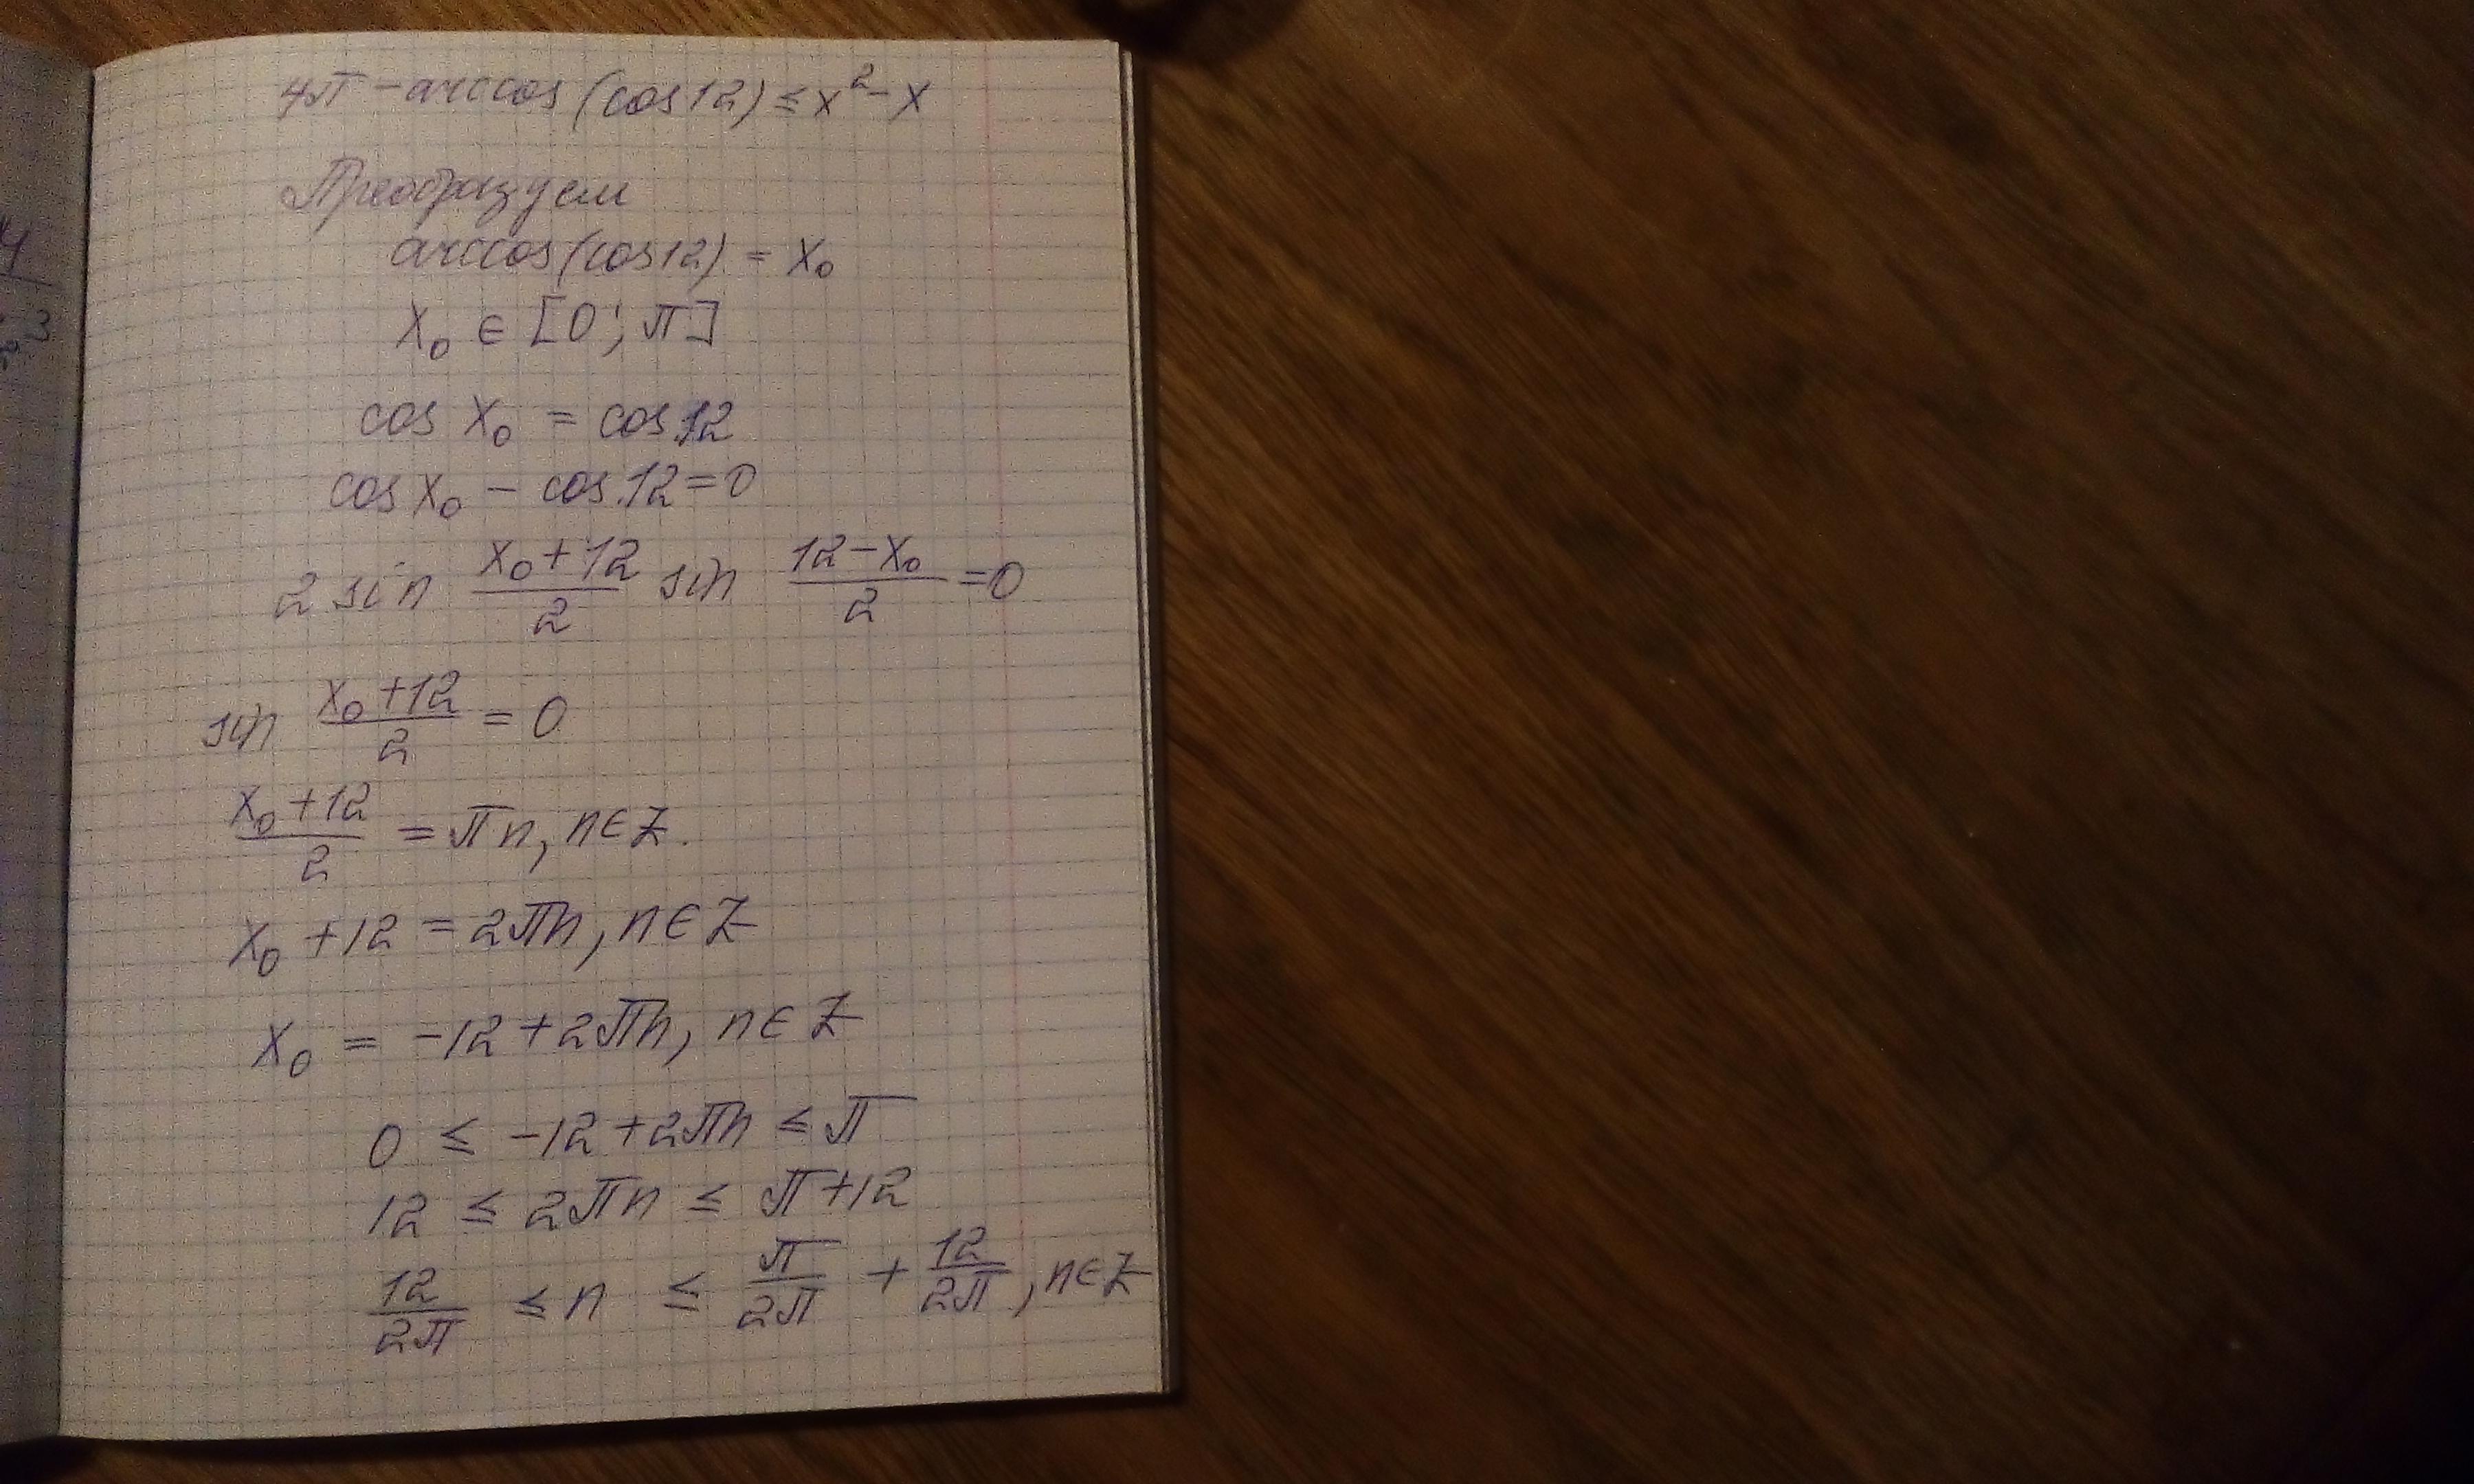 4π - arccos (cos 12) ≤ x² - x
Преобразуем
arccos (cos 12) = x₀
x₀ ∈ [0; π]
cos x₀ = cos 12
cos x₀ - cos 12 = 0
2 sin (x₀ + 12)/2 sin (12 - x₀)/2 = 0
sin (x₀ + 12)/2 = 0
(x₀ + 12)/2 = πn, n ∈ Z.
x₀ + 12 = 2πn, n ∈ Z
x₀ = -12 + 2πn, n ∈ Z
0 ≤ -12 + 2πn ≤ π
12 ≤ 2πn ≤ π + 12
12/2π ≤ n ≤ π/2π + 12/2π, n ∈ Z